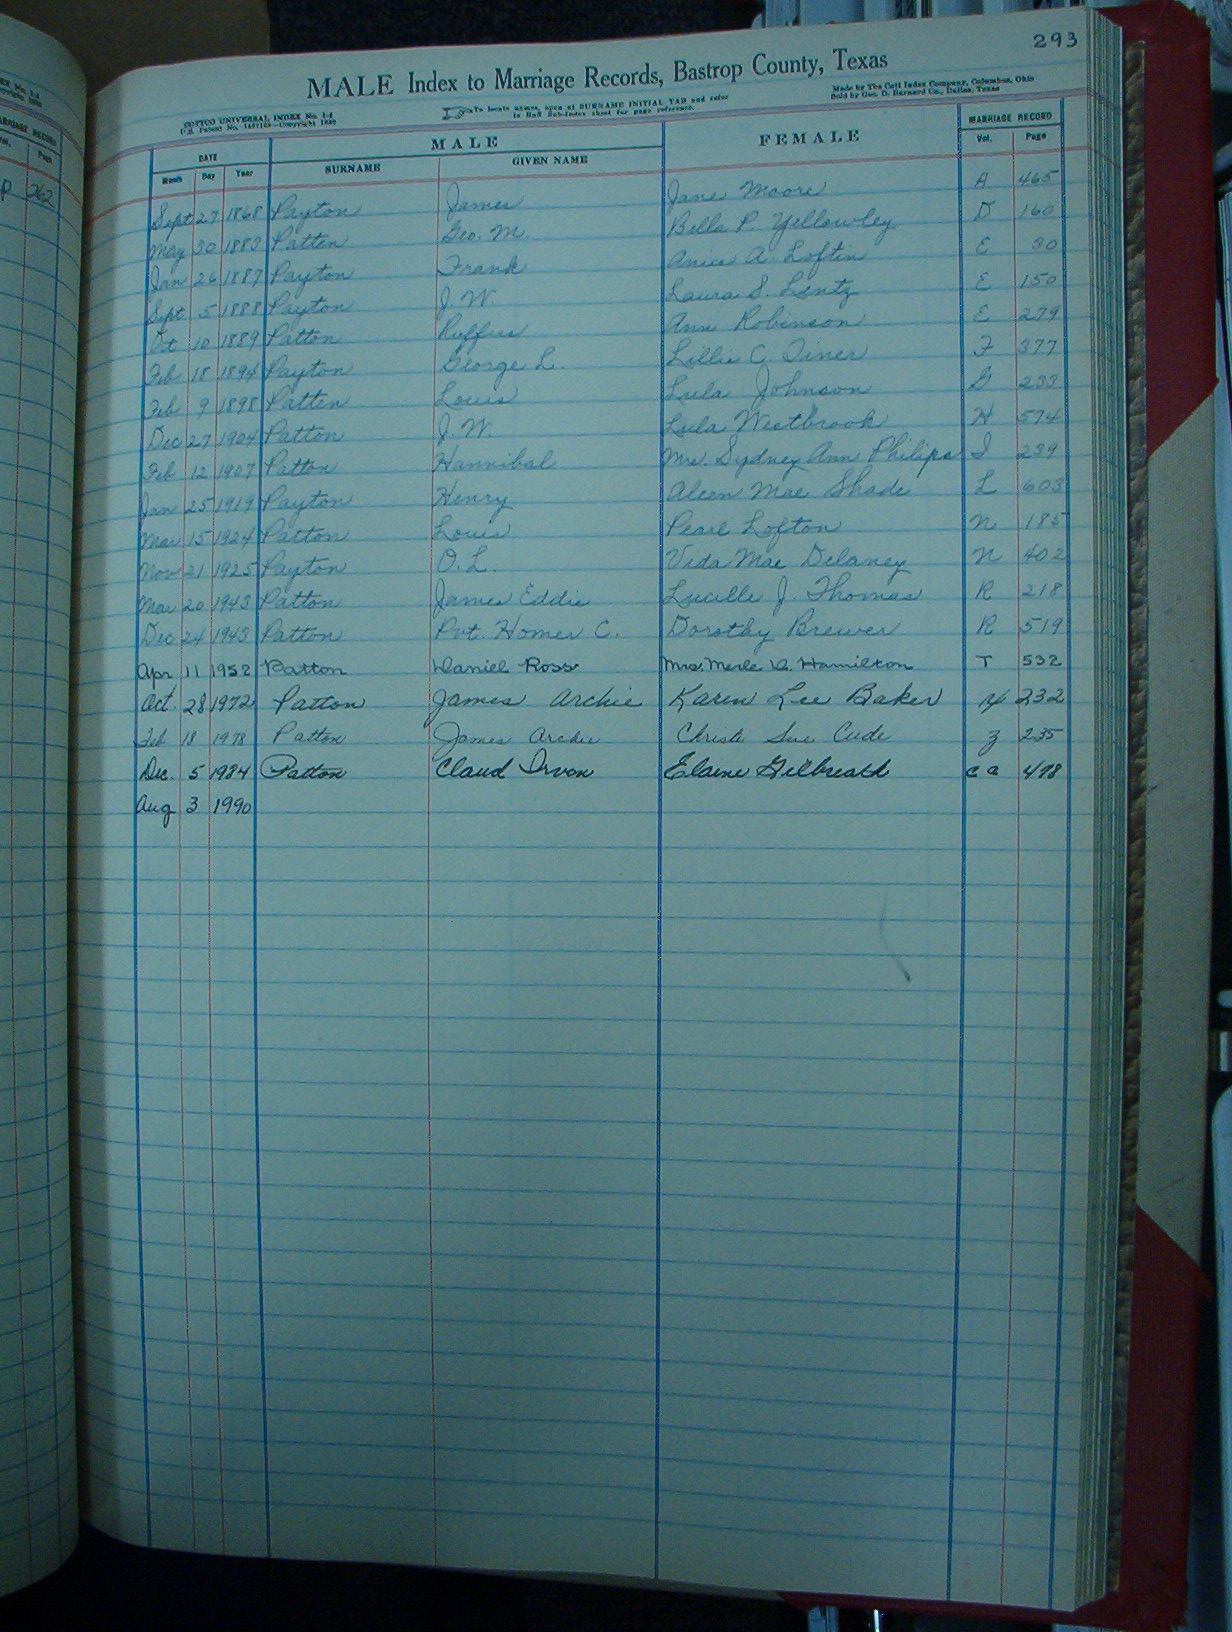 293
MALE Index to Marriage Records, Bastrop County, Texas
COTTCO UNIVERSAL INDEX No. 1-4
To locate names, open at SURNAME INITIAL TAB and refer
in Half Sub-Index sheet for page reference.
Made by The Cott Index Company, Columbus, Ohio
Sold by Geo. D. Barnard Co., Dallas, Texas
DATE MALE FEMALE MARRIAGE RECORD
Month Day Year SURNAME GIVEN NAME Vol. Page
Sept 27 1868 Payton James Jane Moore A 465
May 30 1883 Patten Geo. M. Bella P. Yellowley D 160
Jan 26 1887 Payton Frank Anice A. Loftin E 30
Sept 5 1888 Payton J. W. Laura S. Lentz E 150
Oct 10 1889 Patton Ruffus Ann Robinson E 279
Feb 18 1894 Payton George L. Lillie C. Tiner F 377
Feb 9 1898 Patten Louis Lula Johnson G 233
Dec 27 1904 Patton J. W. Lula Westbrook H 574
Feb 12 1907 Patton Hannibal Mrs. Sydney Ann Philips I 239
Jan 25 1919 Payton Henry Aleen Mae Shade L 603
Mar 15 1924 Patton Louis Pearl Lofton N 185
Nov 21 1925 Payton O. L. Veda Mae Delaney N 402
Mar 20 1943 Patton James Eddie Lucille J. Thomas R 218
Dec 24 1943 Patton Pvt. Homer C. Dorothy Brewer R 519
Apr 11 1952 Patton Daniel Ross Mrs. Merle D. Hamilton T 532
Oct. 28 1972 Patton James Archie Karen Lee Baker 232
Feb 18 1978 Patton James Archie Christi Sue Cude Z 235
Dec. 5 1984 Patton Claud Irvon Elaine Gilbreath CC 498
Aug 3 1990